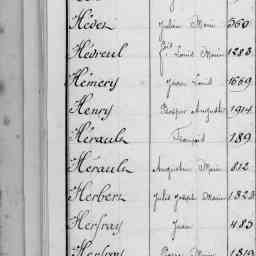 Héder Julien Marie 560
Hévreul Jh Louis Marie 1283
Hémery Jean Louis 1669
Henry Prosper Auguste 1914
Hérault François 189
Hérault Augustin Marie 812
Herbert Jules Joseph Marie 1323
Herfray Jean 483
Herfray Pierre Marie 1319